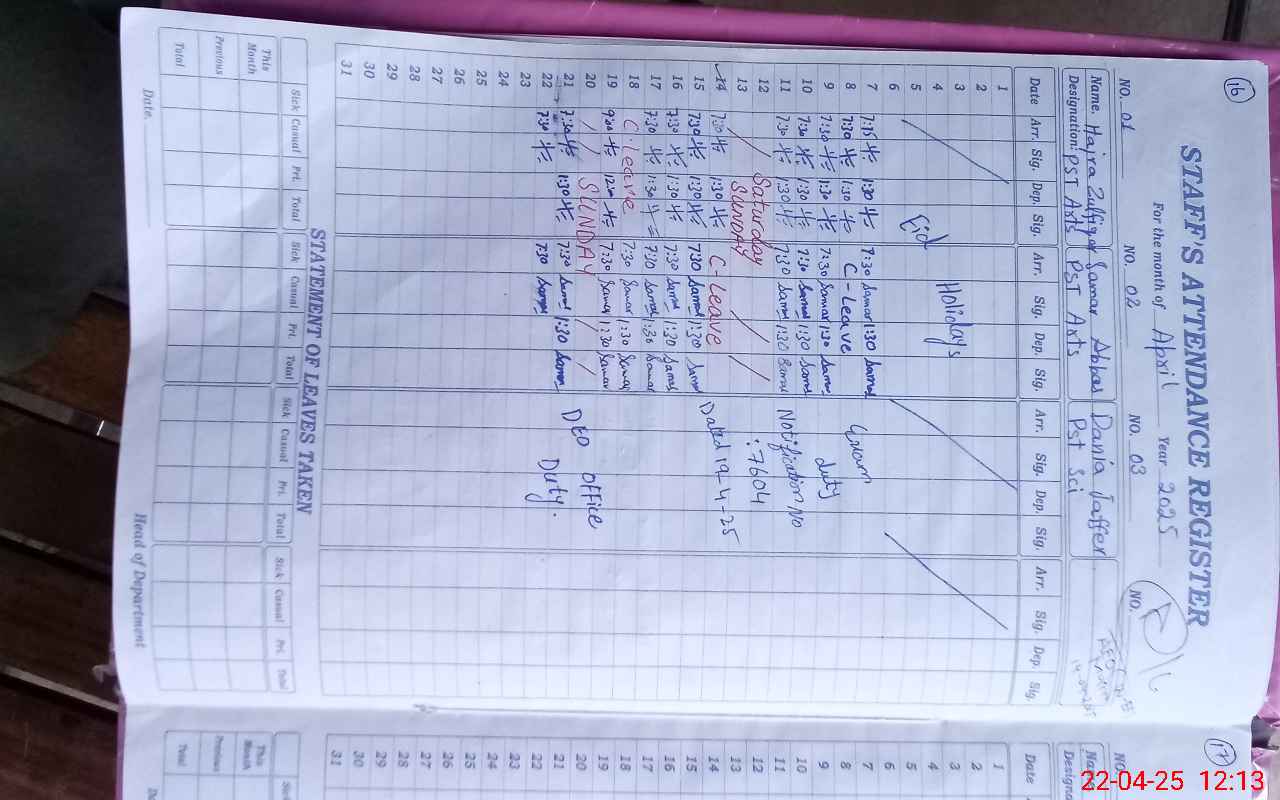 16
STAFF'S ATTENDANCE REGISTER
For the month of April Year 2025
NO. 01 NO. 02 NO. 03 NO.
Name. Hajra Zulfiqar Samar Abbas Dania Jaffer
Designation: PST Arts PST Arts Pst Sci
Date Arr. Sig. Dep. Sig. Arr. Sig. Dep. Sig. Arr. Sig. Dep. Sig. Arr. Sig. Dep. Sig.
1
2
3
4 Holidays
5 Eid
6
7 7:15 1:30 7:30 Samar 1:30 Samar
8 7:30 1:30 C-Leave Exam
9 7:30 1:30 7:30 Samar 1:30 Samar duty
10 7:30 1:30 7:30 Samar 1:30 Samar
11 7:30 1:30 7:30 Samar 1:30 Samar Notification No
12 Saturday : 7604
13 SUNDAY
14 7:30 1:30 C-Leave Dated 19-4-25
15 7:30 1:30 7:30 Samar 1:30 Samar
16 7:30 1:30 7:30 Samar 1:30 Samar
17 7:30 1:30 7:30 Samar 1:30 Samar
18 C-Leave 7:30 Samar 1:30 Samar
19 9:00 12:00 7:30 Samar 1:30 Samar
20 SUNDAY DEO office
21 7:30 1:30 7:30 Samar 1:30 Samar
22 7:30 7:30 Samar Duty.
23
24
25
26
27
28
29
30
31
STATEMENT OF LEAVES TAKEN
Sick Casual Pri. Total Sick Casual Pri. Total Sick Casual Pri. Total Sick Casual Pri. Total
This Month
Previous
Total
Date. Head of Department
17
NO.
Name
Designa
Date
1
2
3
4
5
6
7
8
9
10
11
12
13
14
15
16
17
18
19
20
21
22
23
24
25
26
27
28
29
30
31
This Month
Previous
Total
22-04-25 12:13